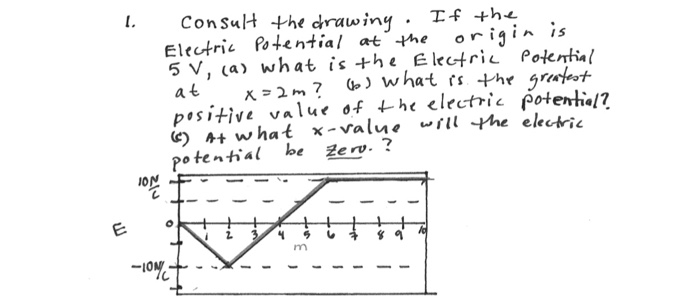 1. Consult the drawing. If the
Electric Potential at the origin is
5 V, (a) what is the Electric Potential
at x=2m? (b) what is the greatest
positive value of the electric potential?
(c) At what x-value will the electric
potential be zero.?
10 N/C
E
0
1 2 3 4 5 6 7 8 9 10
m
-10 N/C